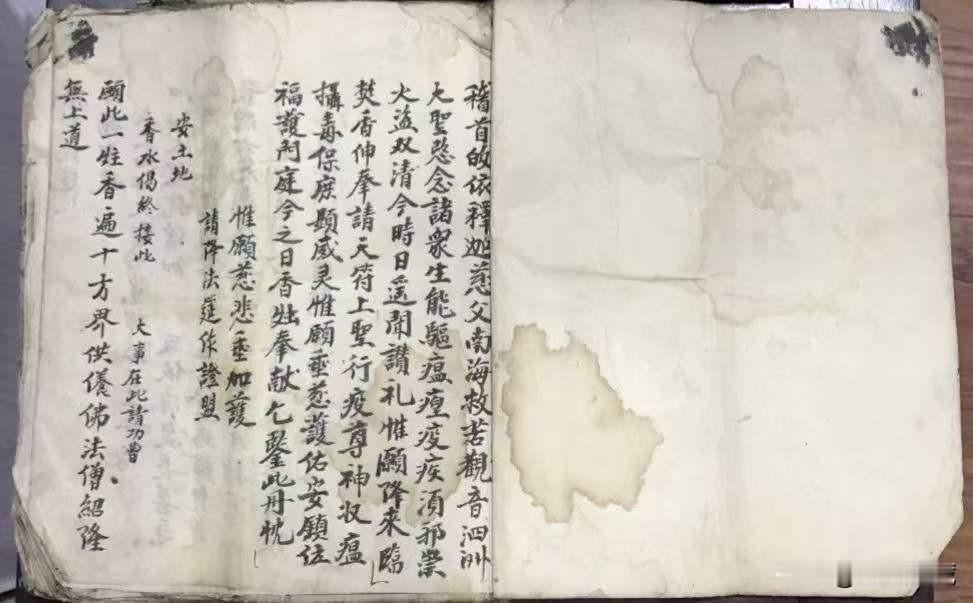 稽首皈依釋迦慈父南海救苦觀音泗洲
大聖慜念諸衆生能驅瘟瘟疫疾須邪祟
火盜双清今時日遥聞讚礼惟願降來臨
焚香伸奉請天符上聖行疫尊神收瘟
攝毒保庶顯威灵惟願垂慈護佑安鎮位
福護門庭今之日香灿奉献乞鑒此丹忱
惟願慈悲垂加護
請降法筵作證盟
安土地
香水偈終接此
大事在此請功曹
願此一炷香遍十方界供儀佛法僧紹隆
無上道